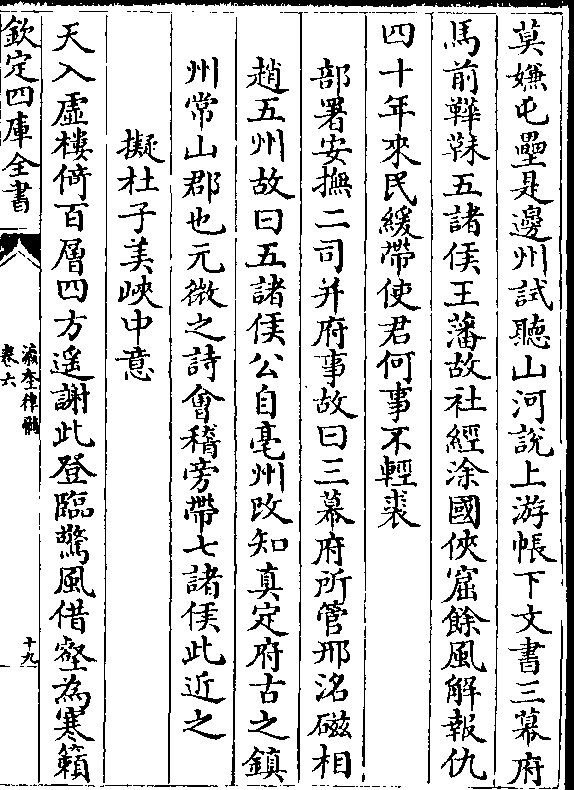 莫嫌屯壘是邊州試聽山河說上游帳下文書三幕府
馬前鞾靺五諸侯王藩故社經涂國俠窟餘風解報仇
四十年來民緩帶使君何事不輕裘
部署安撫二司并府事故曰三幕府所管邢洺磁相
趙五州故曰五諸侯公自亳州改知真定府古之鎮
州常山郡也元微之詩會稽旁帶七諸侯此近之
擬杜子美峽中意
天入虛樓倚百層四方遙謝此登臨驚風借壑為寒籟
欽定四庫全書
瀛奎律髓
卷六
十九